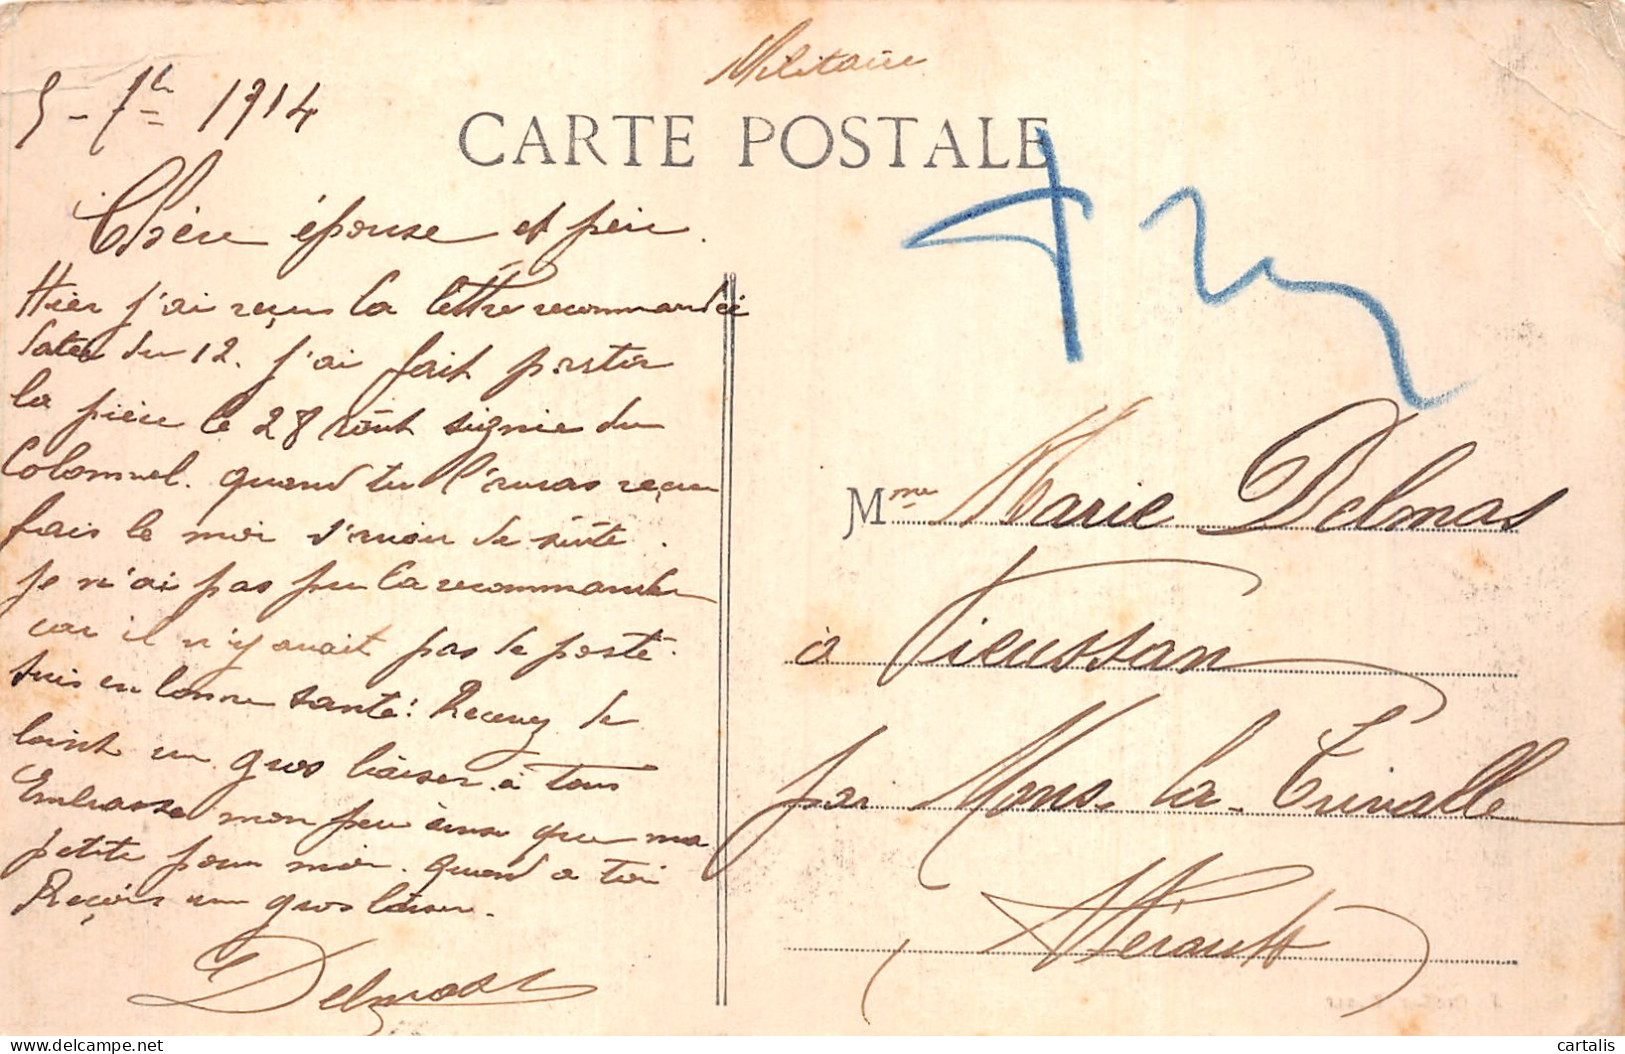 Militaire
5 - 7bre 1914
CARTE POSTALE
Chère épouse et père.
Hier j'ai reçus la lettre recommandée
datée du 12. j'ai fait partir
la pièce le 28 août signie du
Colonnel. quand tu l'auras reçu
fais le moi savoir de suite.
je n'ai pas pu la recommander
car il n'y avait pas de poste.
suis en bonne santé. Recevez de
loint un gros baiser à tous
Embrasse mon père ainsi que ma
petite pour moi. quand a toi
Reçois un gros baiser.
Delmas
Mme Marie Delmas
à Vieussan
par Mons-la-Trivalle
Hérault
cartalis
delcampe.net